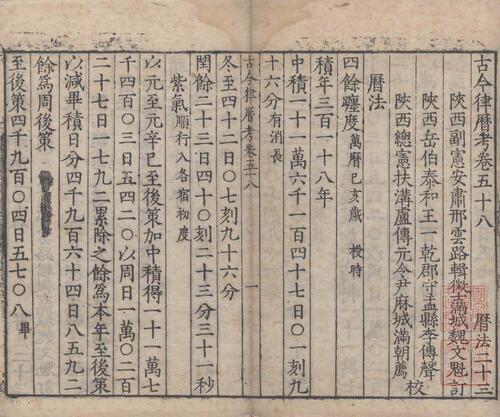 古今律曆考卷五十八 曆法二十三
陝西副憲安肅邢雲路輯 徵士滿城魏文魁訂
陝西岳伯泰和王一乾 郡守孟縣李傳聲
陝西總憲扶溝盧傳元 令尹麻城滿朝薦 校
曆法
四餘躔度 萬曆己亥歲 授時
積年三百一十八年
中積一十一萬六千一百四十七日〇一刻九
十六分有消長
古今律曆考卷五八 一
冬至四十二日〇七刻九十六分
閏餘二十三日四十〇刻二十三分三十一秒
紫氣順行入各宿初度
以元至元辛巳至後策加中積得一十一萬七
千四百〇三日五四二〇以周日一萬〇二百
二十七日一七九二累除之餘為本年至後策
以減畢積日分四千九百六十四日八五九二
餘為周後策
至後策四千九百〇四日五七〇八 畢